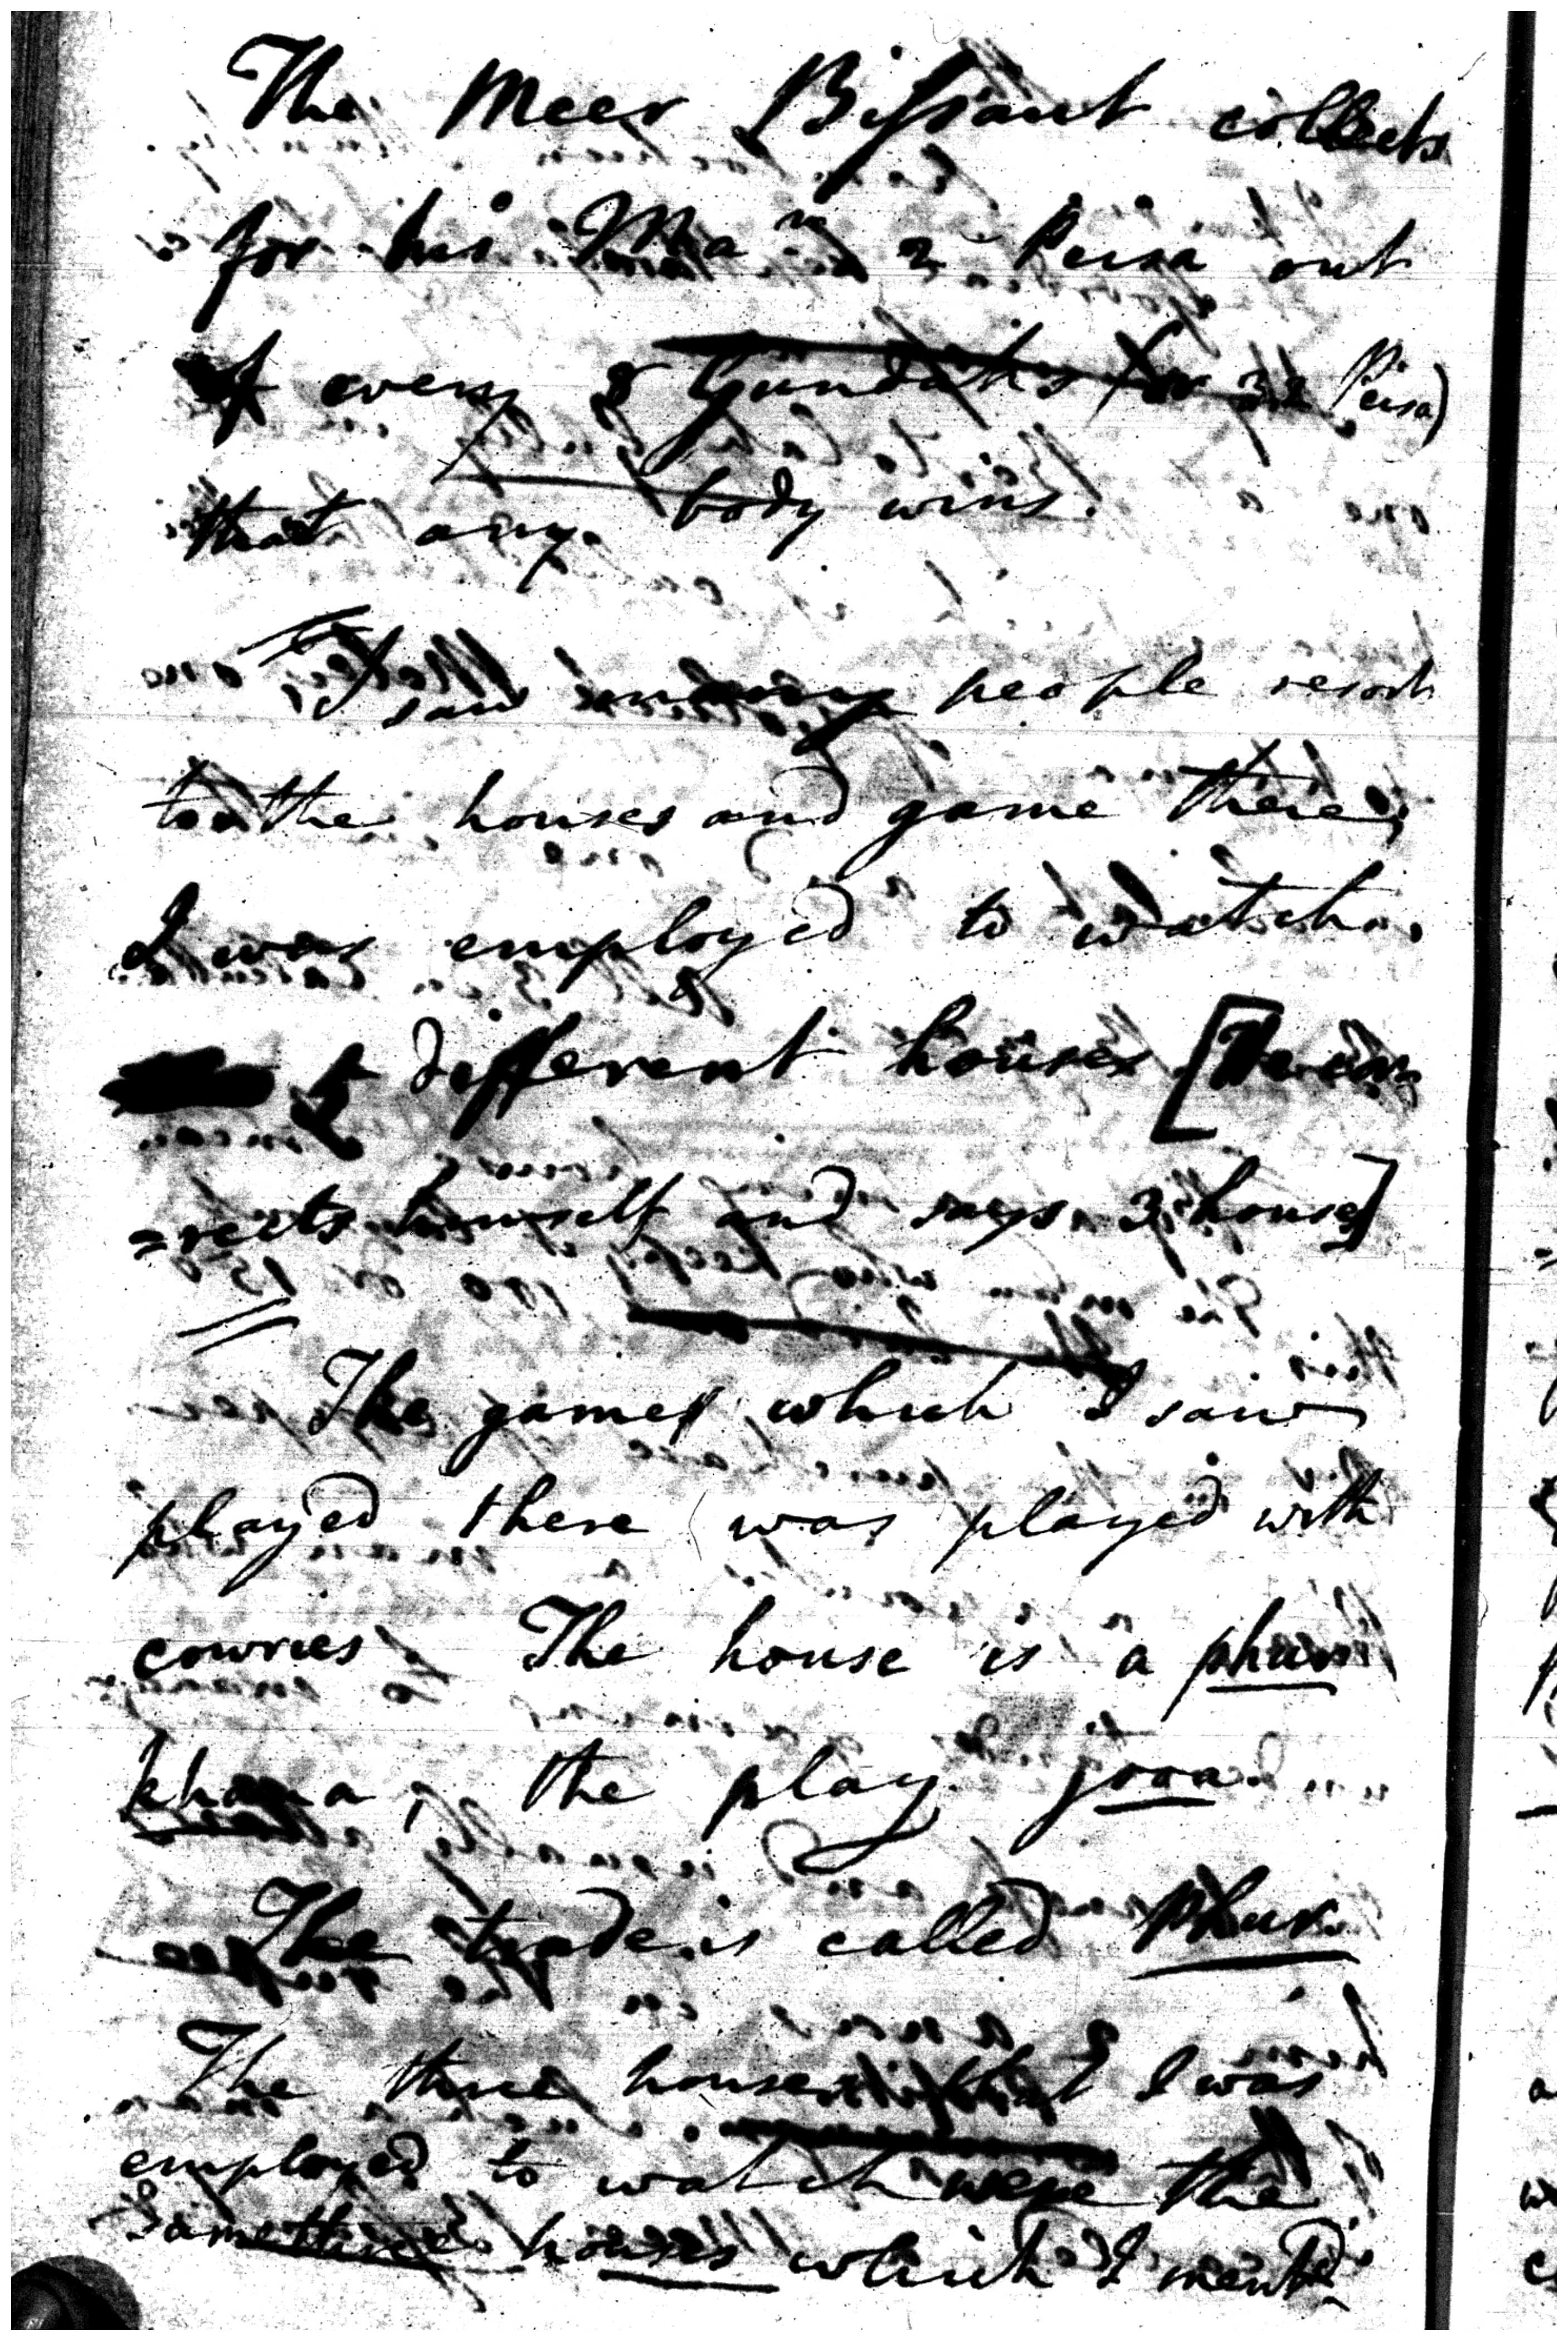 The Meer Bissaut collects
for his Ma^r 2 Peisa out
of every 8 Gundahs (or 32 Peisa)
that any body wins.
I saw many people resort
to the houses and game there;
I was employed to watch
4 different houses [He cor
=rects himself and says 3 houses]
The games which I saw
played there was played with
cowries. The house is a phur
khana, the play jooa.
The trade is called Phur.
The three houses that I was
employed to watch were the
same three houses which I mentd